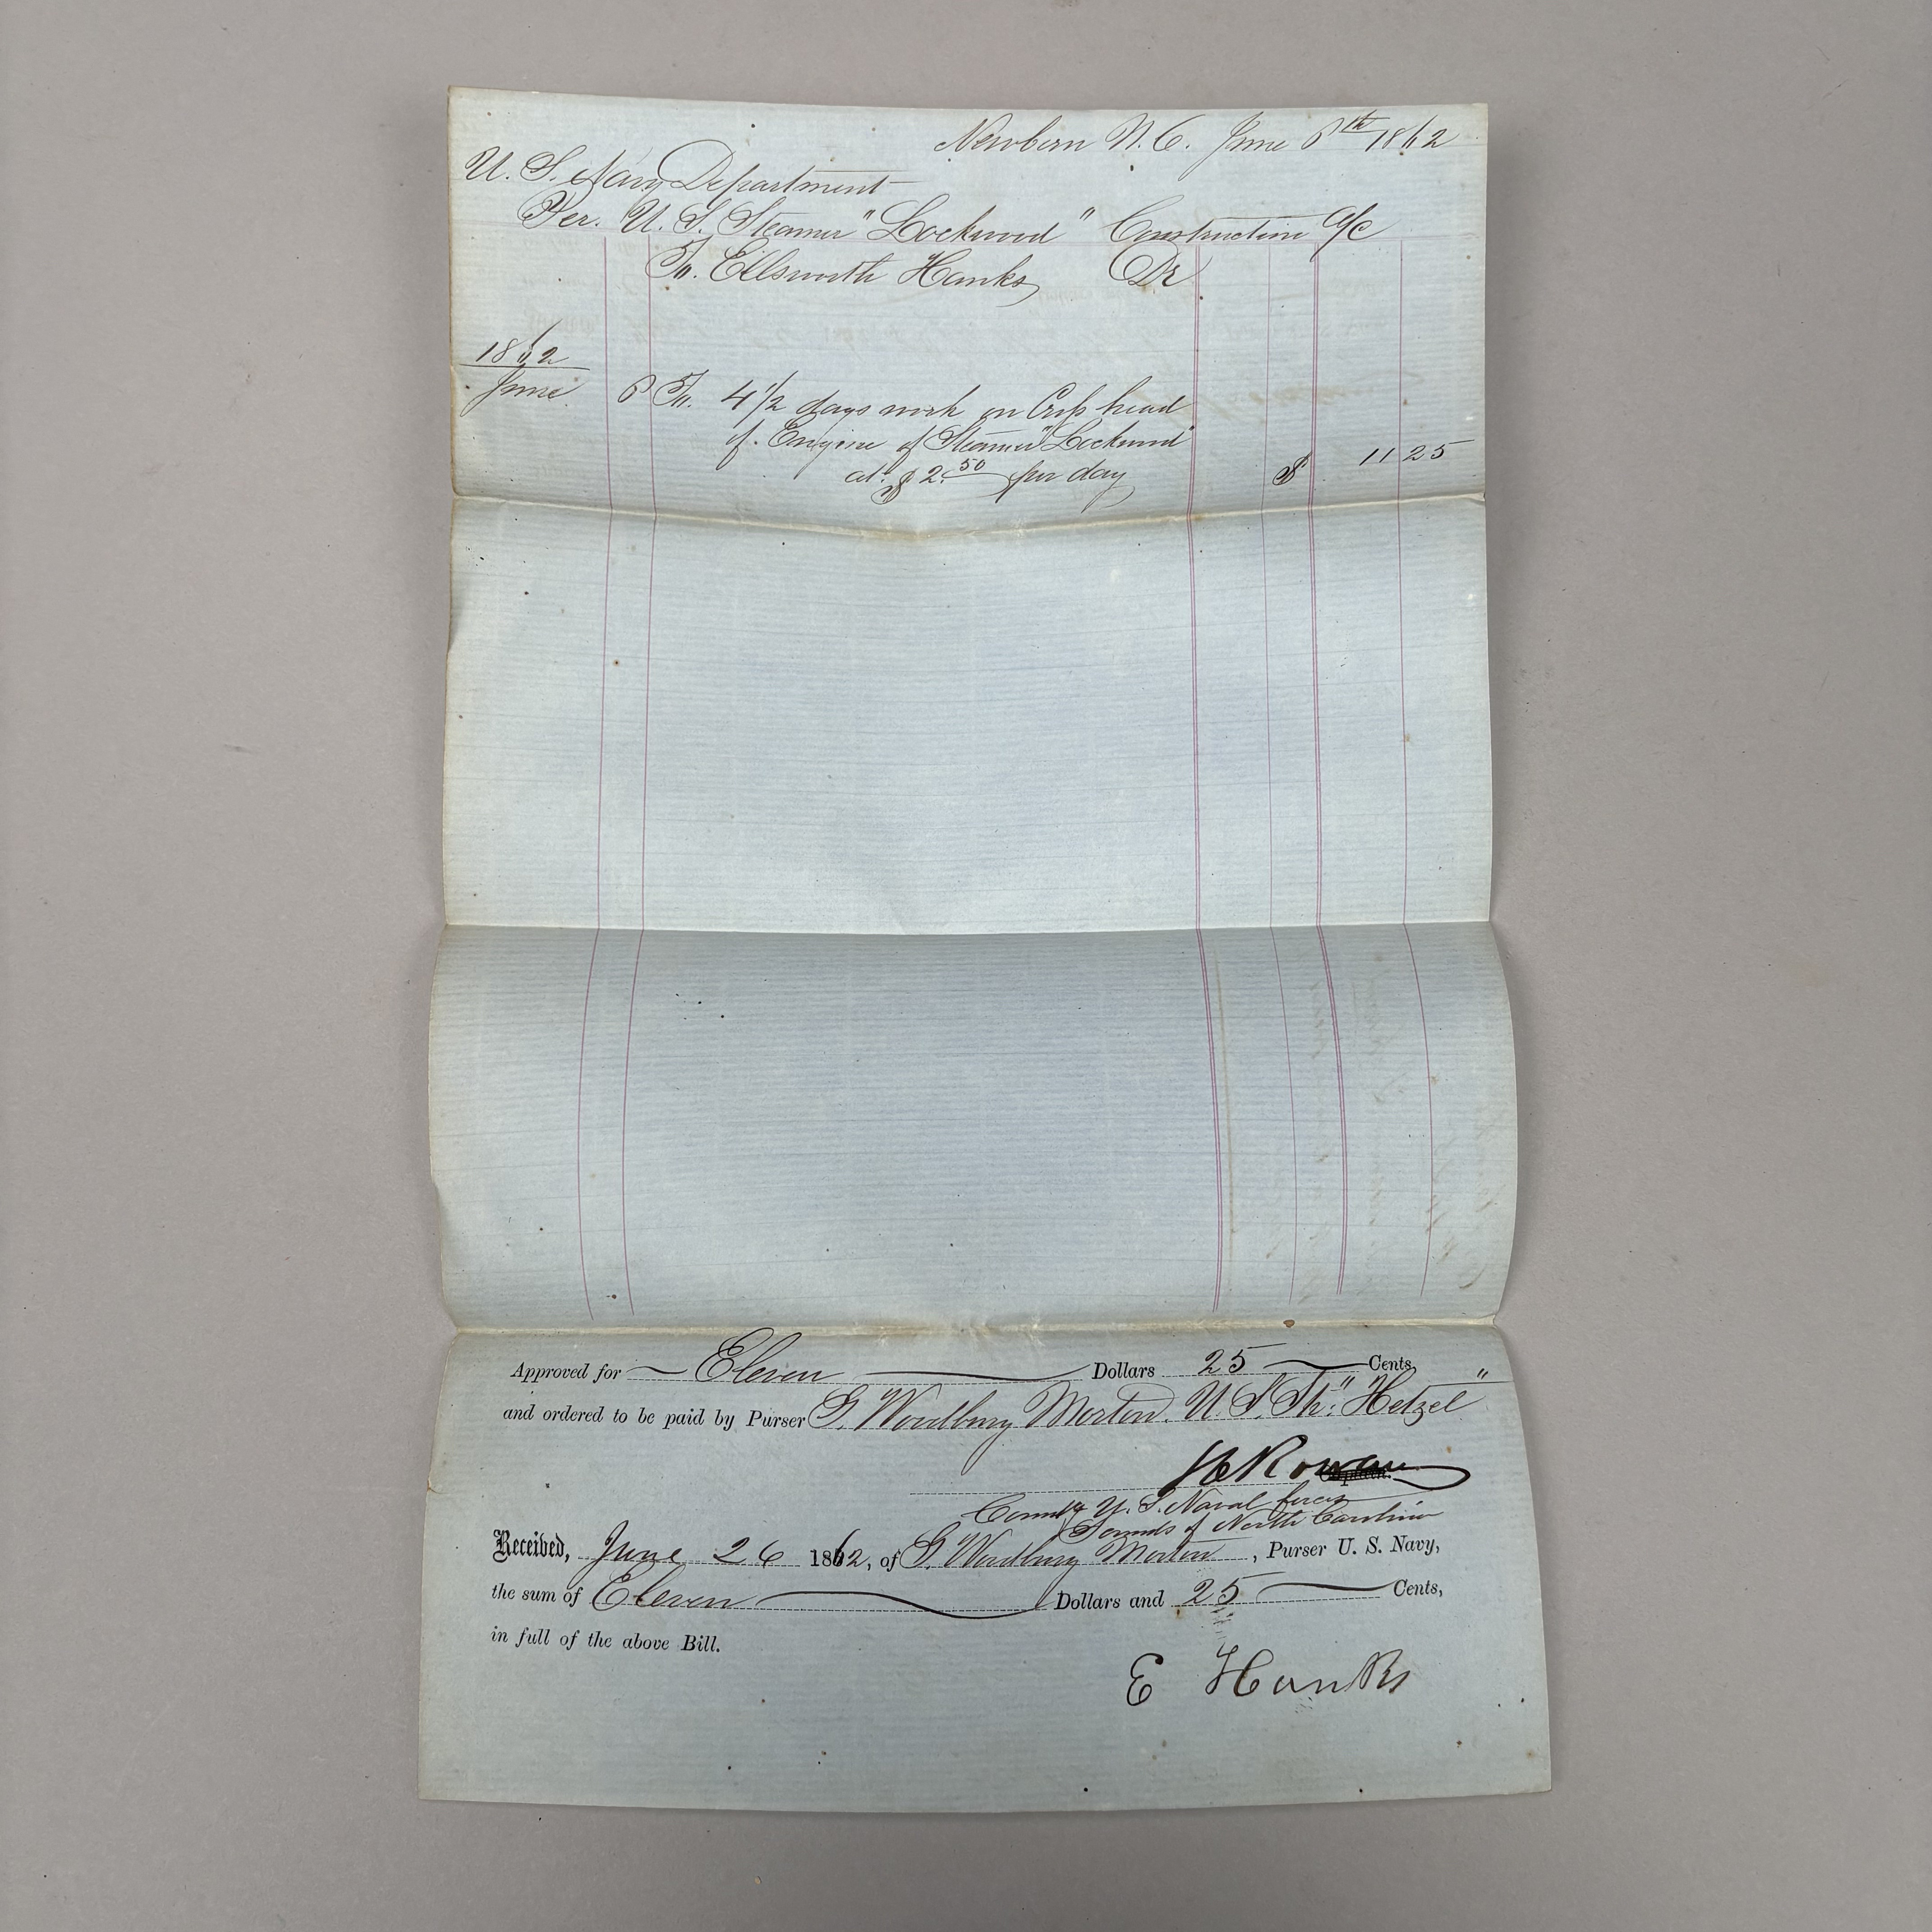 Newbern N.C. June 6th 1862
U. S. Navy Department
Per. U. S. Steamer "Lockwood" Construction a/c
To. Ellsworth Hanks, Dr
1862
June 6 To. 4 1/2 days work on Cross head
of Engine of Steamer "Lockwood"
at $2.50 per day $ 11 25
Approved for Eleven Dollars 25 Cents,
and ordered to be paid by Purser G. Woodbury Morton. U. S. Str. "Hetzel"
Rowan
Captain.
Comdg U. S. Naval forces
Sounds of North Carolina
Received, June 26 1862, of G. Woodbury Morton, Purser U. S. Navy,
the sum of Eleven Dollars and 25 Cents,
in full of the above Bill.
E Hanks